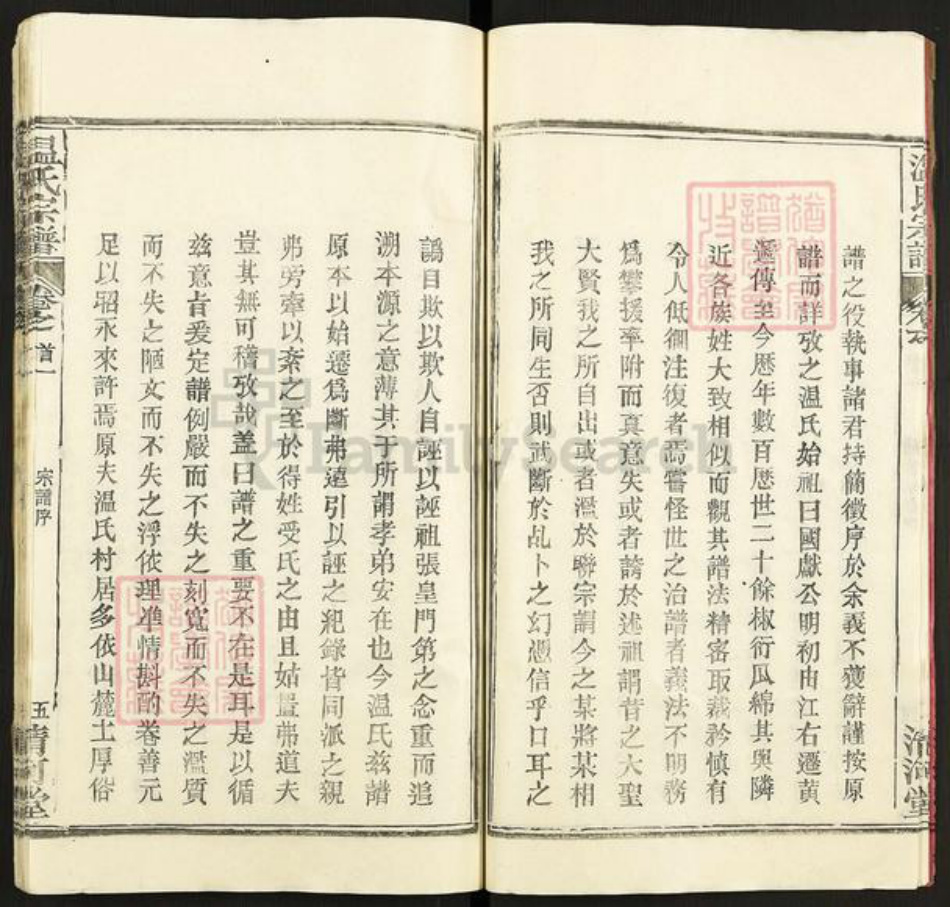 溫氏宗譜
清河堂
譜之役執事諸君持簡徵序於余義不獲辭謹按原
譜而詳攷之温氏始祖曰國獻公明初由江右遷黄
遞傳至今歷年數百歷世二十餘椒衍瓜綿其與隣
近各族姓大致相似而觀其譜法精密取裁矜慎有
令人低徊往復者焉嘗怪世之治譜者義法不明務
爲攀援率附而真意失或者誇於述祖謂昔之大聖
大賢我之所自出或者濫於聯宗謂今之某將某相
我之所同生否則武斷於乩卜之幻憑信乎口耳之
譌自欺以欺人自誣以誣祖張皇門第之念重而追
溯本源之意薄其于所謂孝弟安在也今温氏兹譜
原本以始遷爲斷弗遠引以誣之紀錄皆同派之親
弗旁牽以紊之至於得姓受氏之由且姑置弗道夫
豈其無可稽攷哉盖曰譜之重要不在是耳是以循
兹意旨爰定譜例嚴而不失之刻寬而不失之濫質
而不失之陋文而不失之浮依理準情斟酌卷善元
足以昭永來許焉原夫温氏村居多依山麓土厚俗
温氏宗譜
卷之首一
宗譜序
五
清河堂
FamilySearch